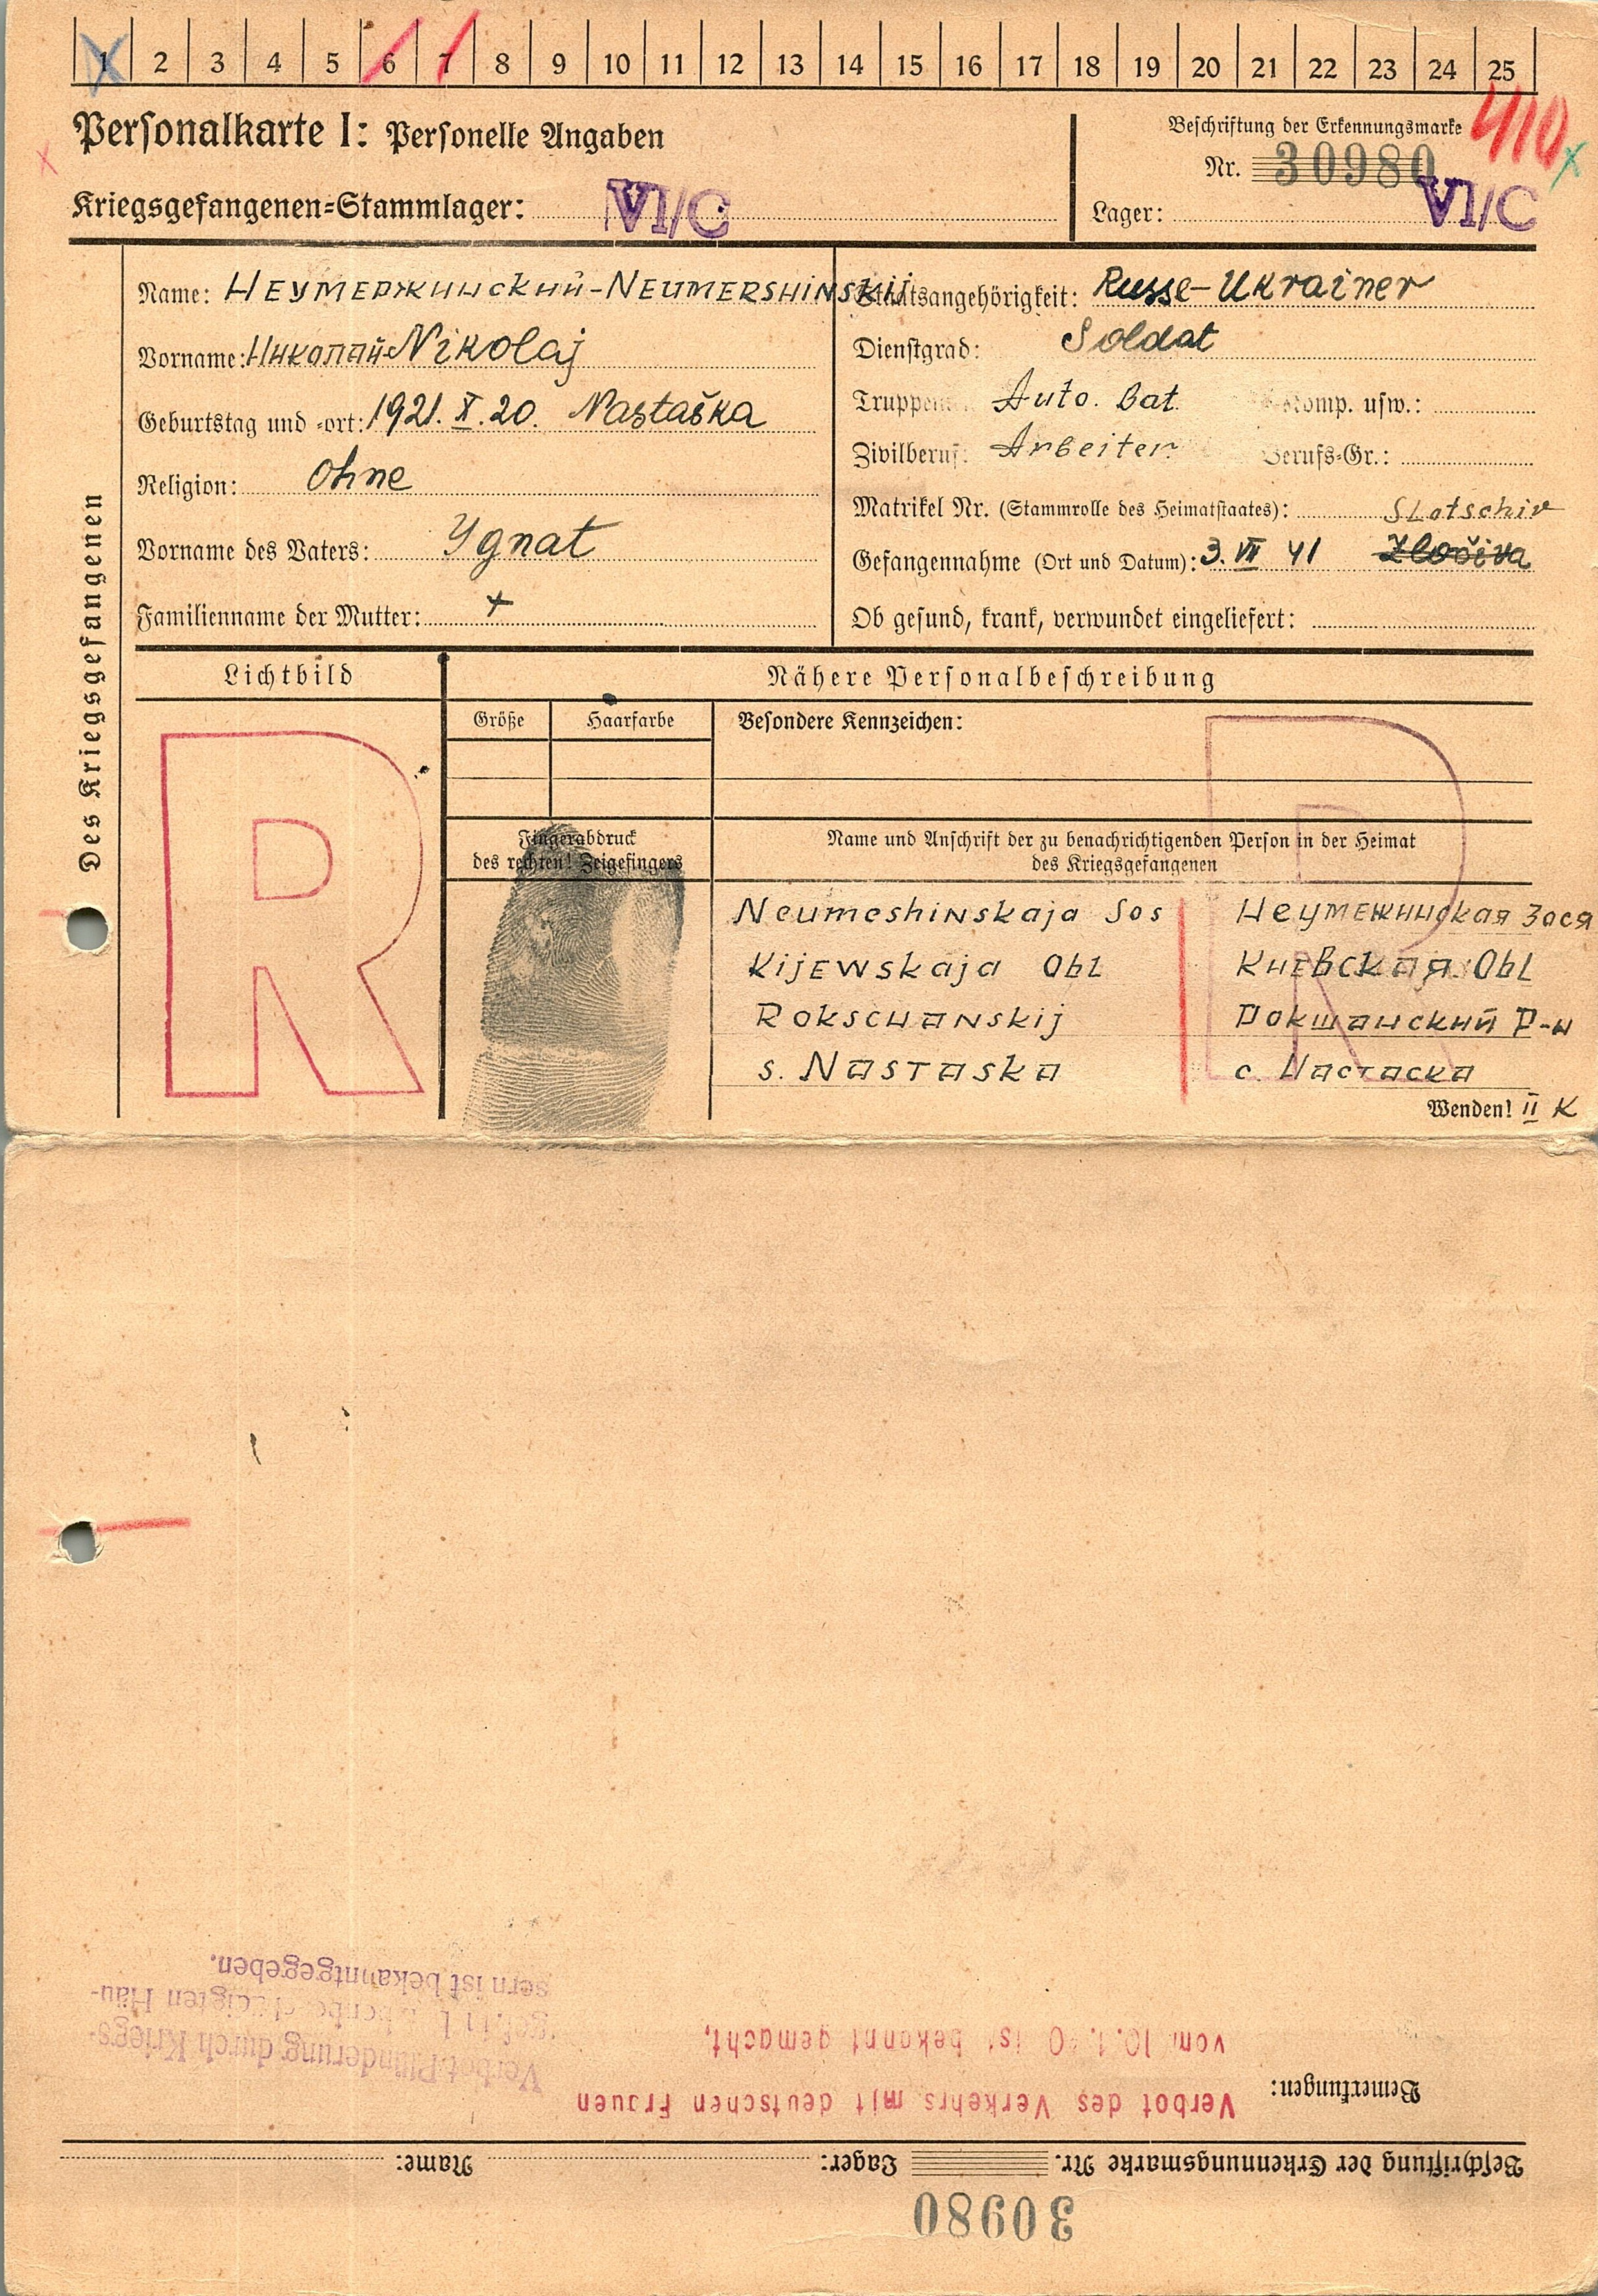 1 2 3 4 5 6 7 8 9 10 11 12 13 14 15 16 17 18 19 20 21 22 23 24 25
410
Personalkarte I: Personelle Angaben
Beschriftung der Erkennungsmarke
Nr. 30980
Kriegsgefangenen-Stammlager: VI/C
Lager: VI/C
Des Kriegsgefangenen
Name: Неумержинский-Neumershinskij
Vorname: Николай-Nikolaj
Geburtstag und -ort: 1921. X. 20. Nastaška
Religion: Ohne
Vorname des Vaters: Ygnat
Familienname der Mutter: +
Staatsangehörigkeit: Russe-Ukrainer
Dienstgrad: Soldat
Truppen Auto. Bat. Komp. usw.:
Zivilberuf: Arbeiter Berufs-Gr.:
Matrikel Nr. (Stammrolle des Heimatstaates):
Slotschiv
Gefangennahme (Ort und Datum): 3. VII 41 Zločiva
Ob gesund, krank, verwundet eingeliefert:
Lichtbild
Nähere Personalbeschreibung
Größe Haarfarbe Besondere Kennzeichen:
R R
Fingerabdruck
des rechten! Zeigefingers
Name und Anschrift der zu benachrichtigenden Person in der Heimat
des Kriegsgefangenen
Neumeshinskaja Sos
Kijewskaja Obl
Rokschanskij
s. Nastaska
Неумежинская Зося
Киевская Obl
Рокшанский Р-н
с. Настаска
Wenden! II K
30980
Beschriftung der Erkennungsmarke Nr. Lager: Name:
Bemerkungen:
Verbot des Verkehrs mit deutschen Frauen
vom 10.1.40 ist bekannt gemacht.
Verbot Plünderung durch Kriegs-
gef. in beschädigten Häu-
sern ist bekanntgegeben.